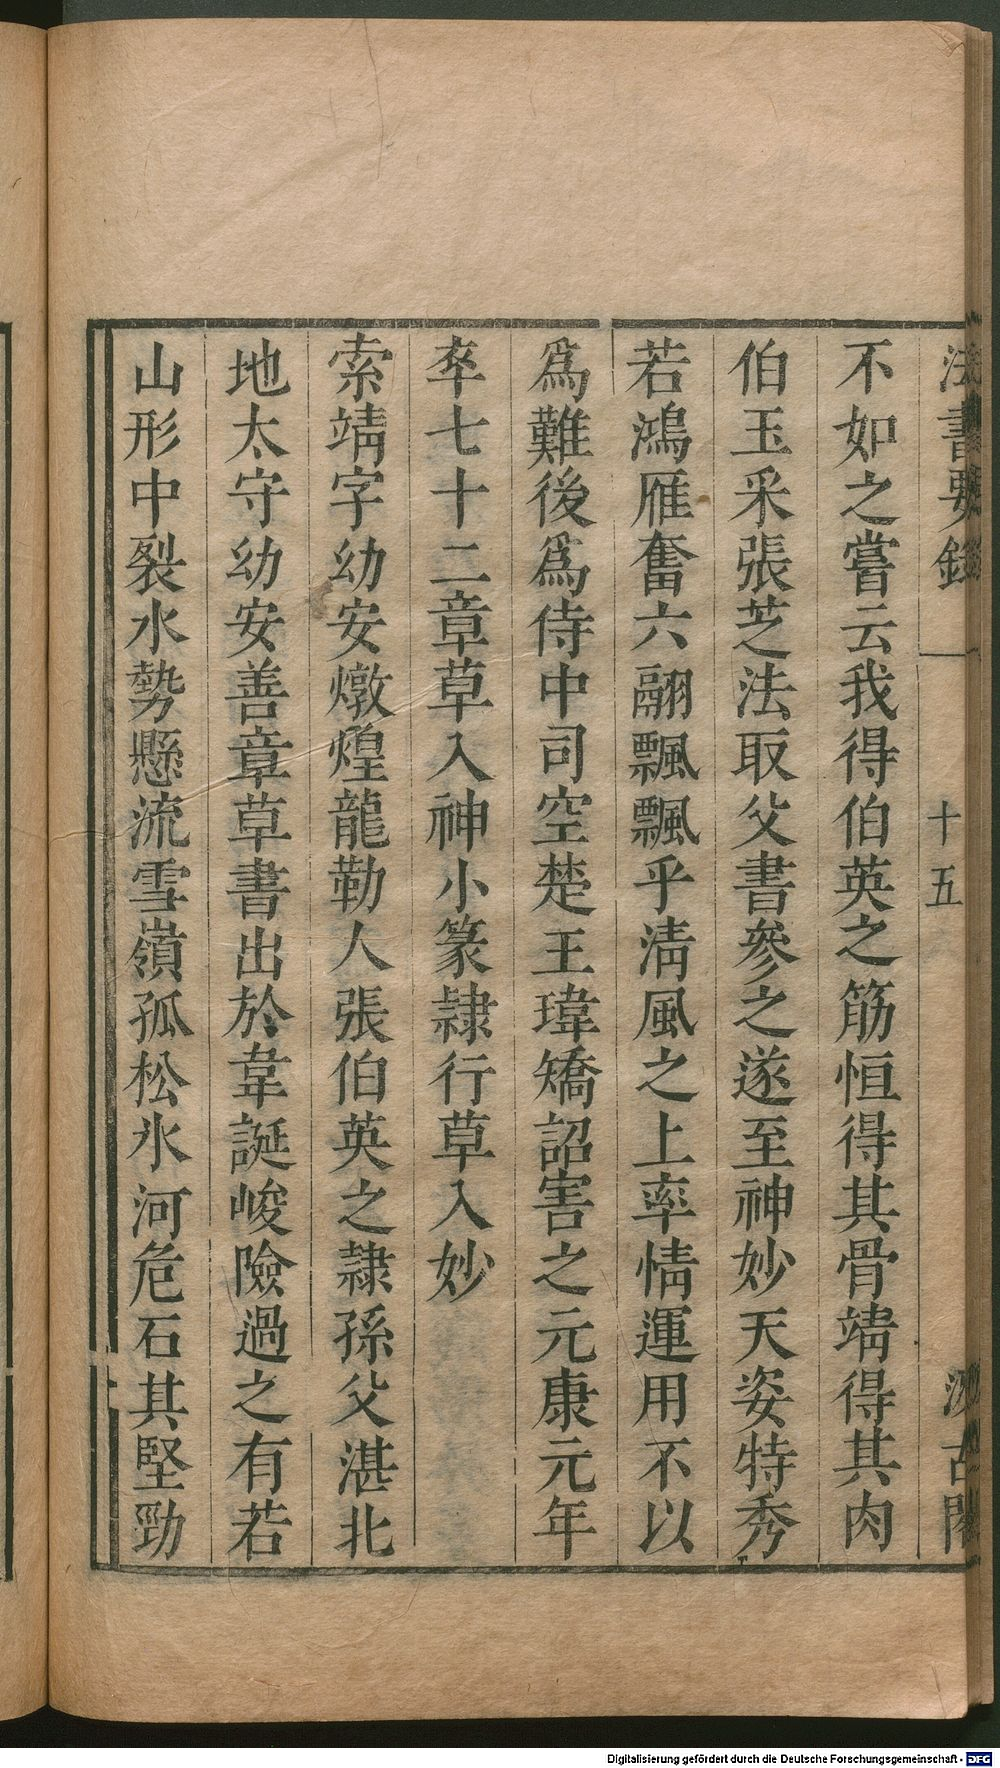 法書要錄 一 十五 汲古閣
不如之嘗云我得伯英之筋恒得其骨靖得其肉
伯玉采張芝法取父書參之遂至神妙天姿特秀
若鴻雁奮六翮飄飄乎淸風之上率情運用不以
爲難後爲侍中司空楚王瑋矯詔害之元康元年
卒七十二章草入神小篆隷行草入妙
索靖字幼安燉煌龍勒人張伯英之隷孫父湛北
地太守幼安善章草書出於韋誕峻險過之有若
山形中裂水勢懸流雪嶺孤松氷河危石其堅勁
Digitalisierung gefördert durch die Deutsche Forschungsgemeinschaft - DFG